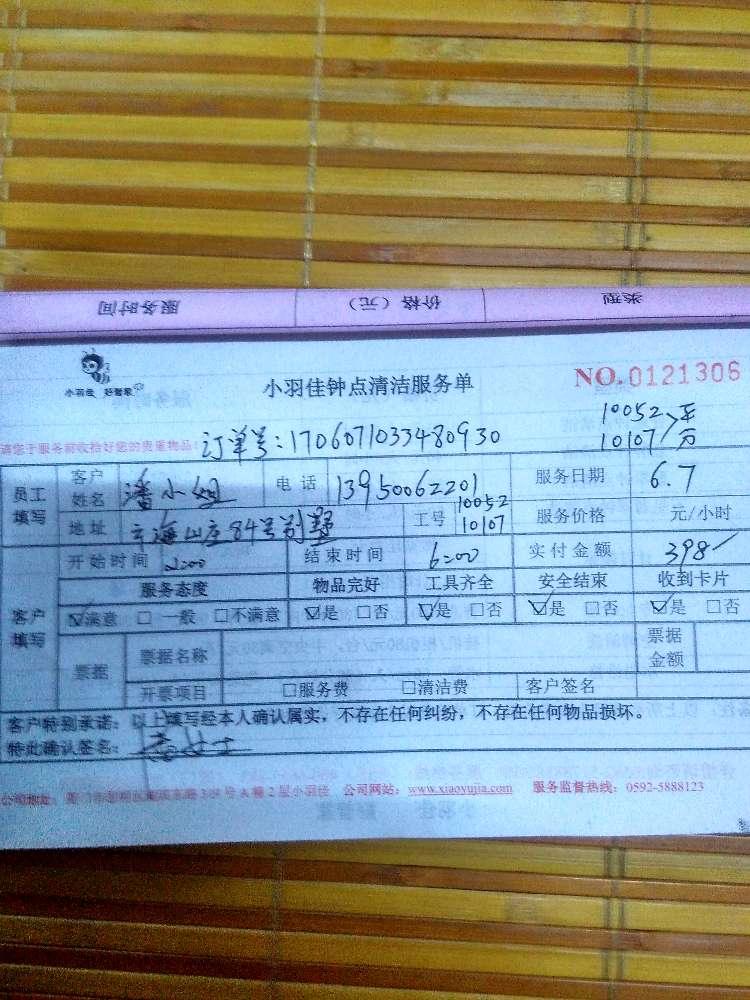 服务时间 价格（元） 类型
小羽佳 好管家
小羽佳钟点清洁服务单
NO.0121306
请您于服务前收拾好您的贵重物品！
订单号：1706071033480930
10052
10107
员工填写 客户姓名 潘小姐 电话 13950062201 服务日期 6.7
地址 云海山庄84号别墅 工号 10052 10107 服务价格 元/小时
客户填写 开始时间 2:00 结束时间 6:00 实付金额 398
服务态度 物品完好 工具齐全 安全结束 收到卡片
☑满意 □一般 □不满意 ☑是 □否 ☑是 □否 ☑是 □否 ☑是 □否
票据 票据名称 票据金额
开票项目 □服务费 □清洁费 客户签名
客户特别承诺：以上填写经本人确认属实，不存在任何纠纷，不存在任何物品损坏。
特此确认签名：
公司地址： 号A幢2层小羽佳 公司网站：www.xiaoyujia.com 服务监督热线：0592-5888123